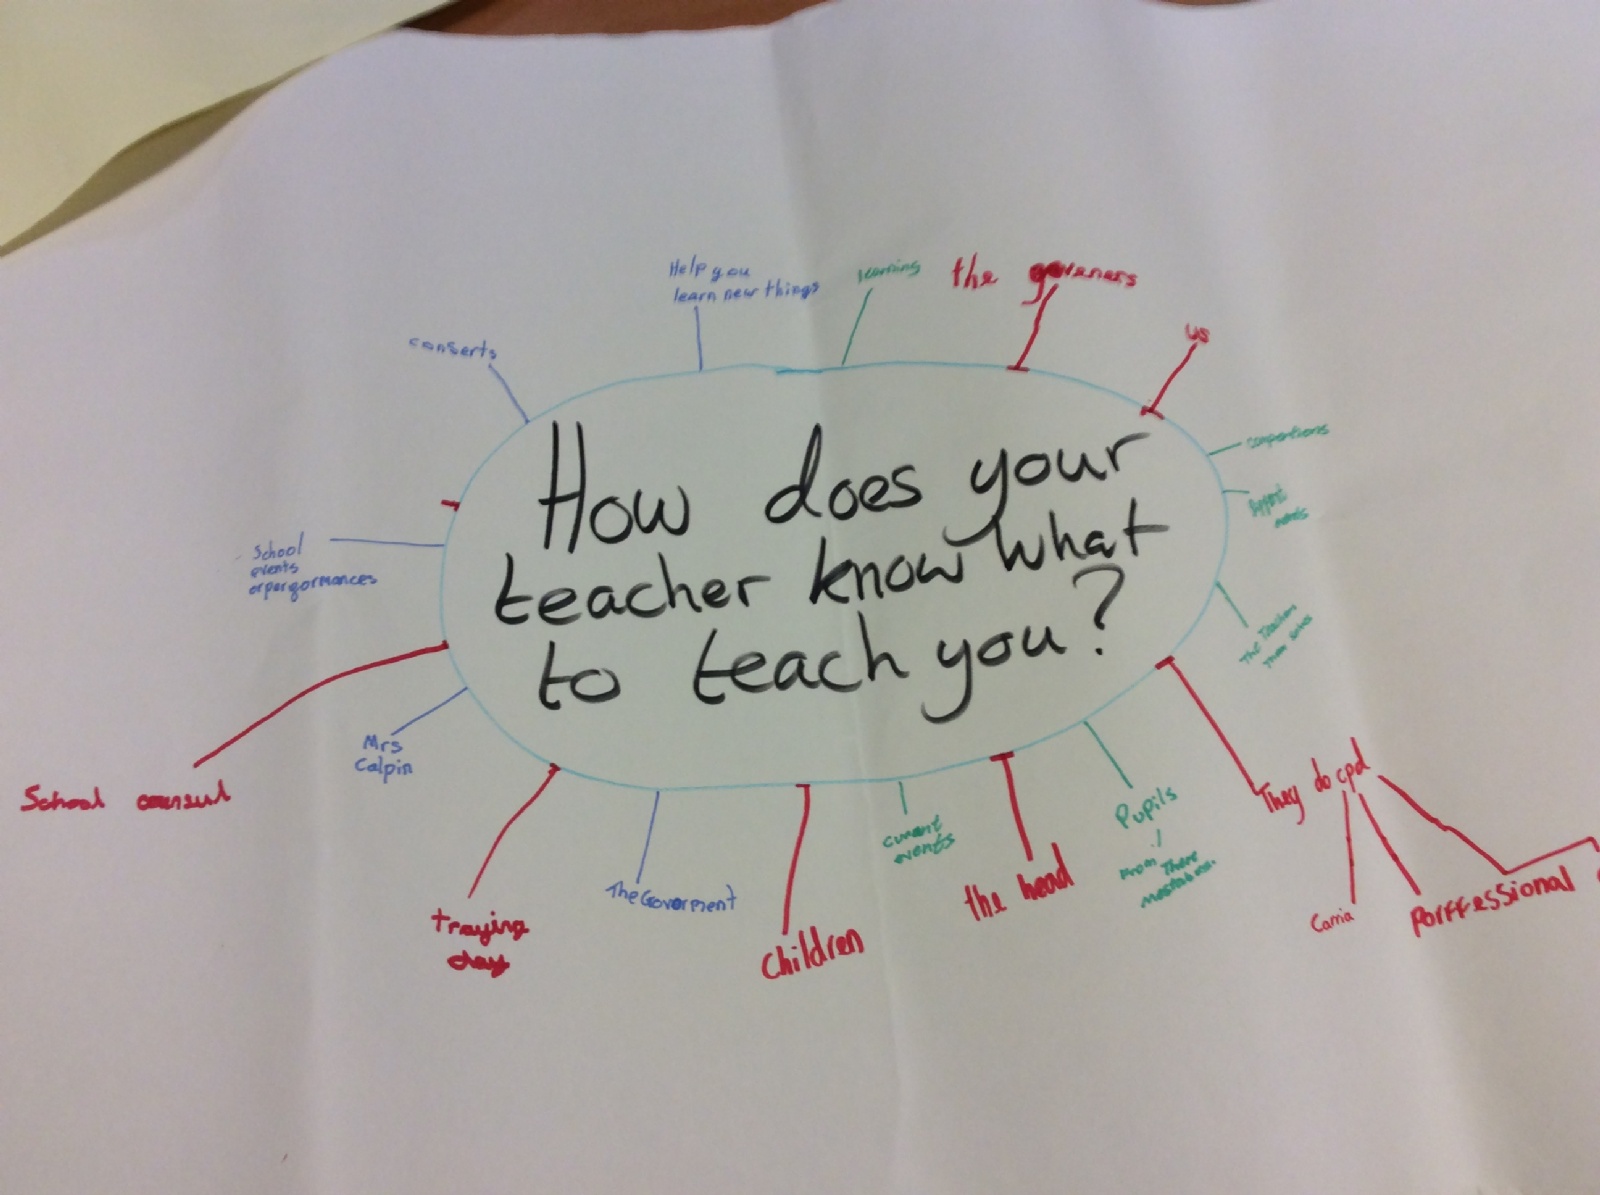 How does your
teacher know what
to teach you?
Help you
learn new things
learning
the goveners
us
conserts
School
events
orpergormances
School counsul
Mrs
Calpin
traying
day
The Goverment
children
current
events
the head
Pupils
From There
They do cpd
Carria
Porffessional
The Teachers